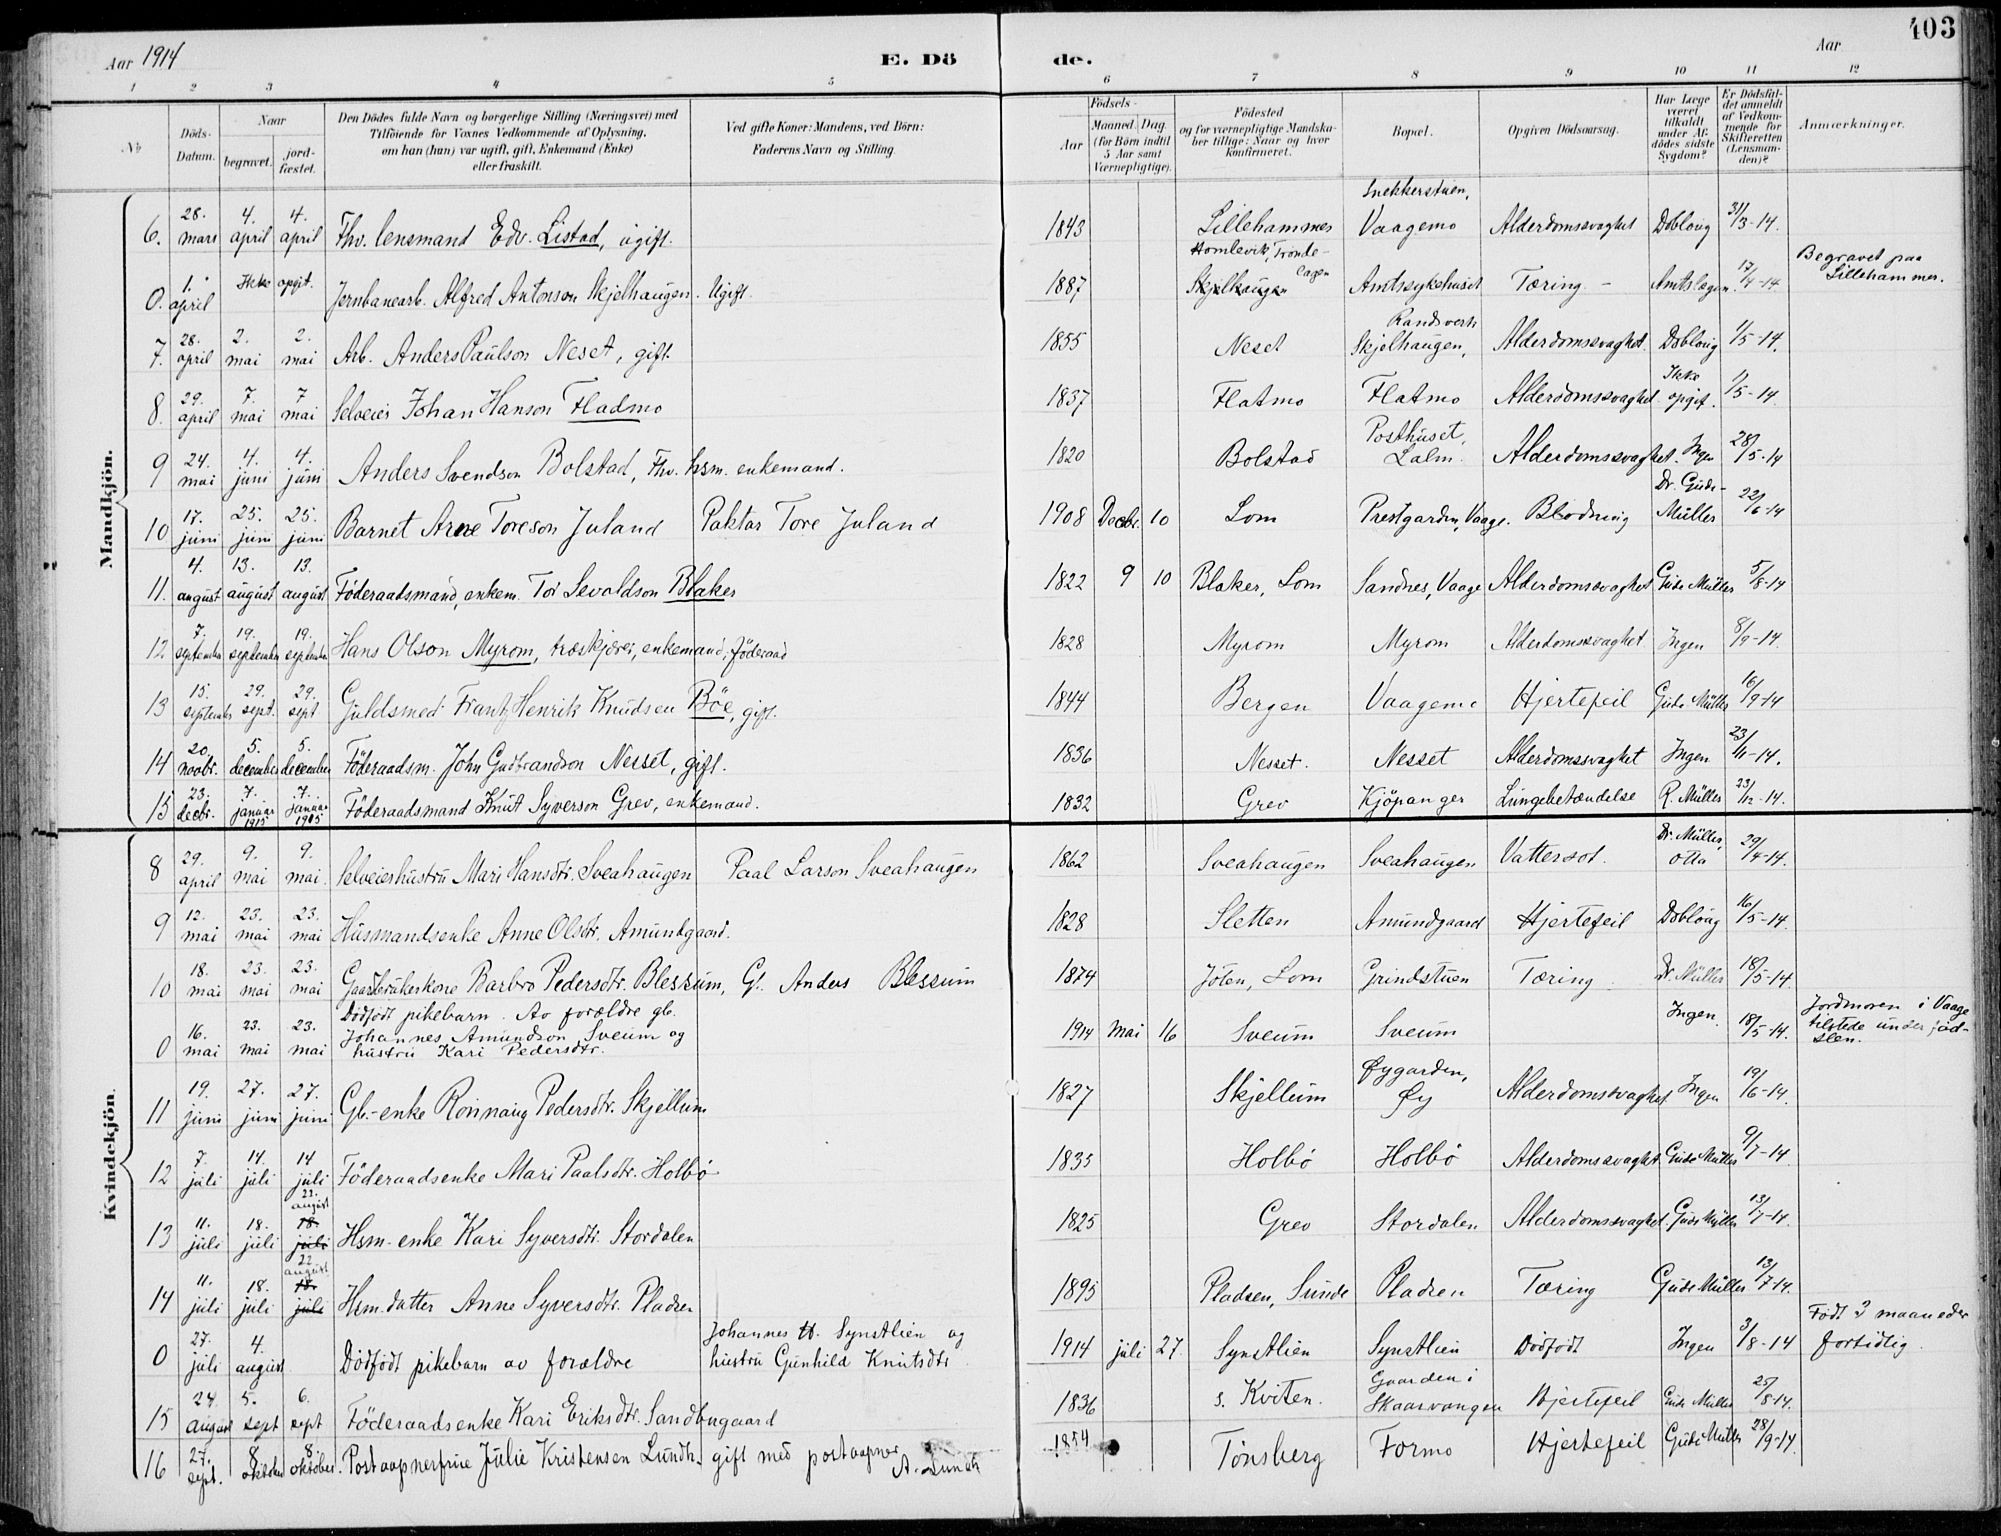 403
Aar 1914 E. Dö de. Aar
1 2 3 4 5 6 7 8 9 10 11 12
No
Döds-Datum.
Naar begravet. jord-fæstet.
Den Dödes fulde Navn og borgerlige Stilling (Næringsvei) med
Tilföiende for Voxnes Vedkommende af Oplysning,
om han (hun) var ugift, gift, Enkemand (Enke)
eller fraskilt.
Ved gifte Koner: Mandens, ved Börn:
Faderens Navn og Stilling.
Födsels-
Aar Maaned. Dag.
(for Børn indtil 5 Aar samt Værnepligtige).
Födested
og for værnepligtige Mandska-
ber tillige: Naar og hvor
konfirmeret.
Bopæl.
Opgiven Dødsaarsag.
Har Læge været tilkaldt under Af-dödes sidste Sygdom?
Er Dödsfal-det anmeldt af Vedkom-mende for Skifteretten (Lensman-den)?
Anmærkninger.
Mandkjön.
6. 28. mars 4. april 4. april Fhv. lensmand Edv. Listad, ugift. 1843 Lillehammer Snekkerstuen, Vaagemo Alderdomssvaghet Dobloug 31/3-14.
0. 1. april Ikke opgit. Jernbanearb. Alfred Antonson Skjelhaugen. Ugift. 1887 Skjelhaugen Amtssykehuset Tæring - Amtslægen 17/4-14. Begravet paa Lillehammer.
7. 28. april 2. mai 2. mai Arb. Anders Paulson Neset, gift. 1855 Neset Randsverk Skjelhaugen, Alderdomssvaghet. Dobloug 1/5-14.
8. 29. april 7. mai 7 mai Selveier Johan Hanson Fladmo 1837 Flatmo Flatmo Alderdomssvaghet Ikke opgit. 1/5-14.
9 24. mai 4. juni 4. juni Anders Svendson Bolstad, Fhv. hsm. enkemand. 1820 Bolstad Posthuset, Lalm. Alderdomssvaghet. Ingen 28/5-14
10 17. juni 25. juni 25. juni Barnet Arne Toreson Juland Paktar Tore Juland 1908 Decbr. 10 Lom Prestgarden, Vaage. Blødning Dr. Guido Müller 22/6-14
11. 4. august 13. august 13. august Föderaadsmand, enkem. Tor Sevaldson Blaker 1822 9 10 Blaker, Lom Sandnes, Vaage Alderdomssvaghet Guido Müller 5/8-14
12 7. september 19. september 19. september Hans Olson Myrom, træskjærer, enkemand, föderaad 1828 Myrom Myrom Alderdomssvaghet Ingen 8/9-14.
13 15. september 29. sept. 29. sept Guldsmed Frantz Henrik Knudsen Böe, gift. 1844 Bergen Vaagemo Hjertefeil Guido Müller 16/9-14
14 20. novbr. 5. december 5. december Föderaadsm. John Gudbrandson Nesset, gift. 1836 Nesset. Nesset Alderdomssvaghet Ingen 23/11-14.
15 23. decbr. 7. januar 1915 7. januar 1915 Föderaadsmand Knut Syverson Grev, enkemand. 1832 Grev Kjöpanger Lungebetændelse R. Müller 23/12-14.
Kvindekjön.
8 29. april 9. mai 9. mai. Selveierhustru Mari Hansdtr. Sveahaugen Paal Larson Sveahaugen 1862 Sveahaugen Sveahaugen Vattersot. Dr. Müller, Otta 29/4-14.
9 12. mai 23. mai 23. mai Husmandsenke Anne Olsdtr. Amundgaard. 1828 Sletten Amundgaard Hjertefeil Dobloug 16/5-14.
10 18. mai 23. mai 23. mai Gaardbrukerkone Barbro Pedersdtr. Blessum, G. Anders Blessum 1874 Jöten, Lom Grindstuen Tæring Dr. Müller 18/5-14.
0 16. mai 23. mai 23. mai Dödfödt pikebarn. Av forældre gb. Johannes Amundson Sveum og hustru Kari Pedersdtr. 1914 Mai 16 Sveum Sveum Ingen. 18/5-14. Jordmoren i Vaage tilstede under fød-slen.
11 19. juni 27. juni 27. juni Gb.-enke Rønnaug Pedersdtr. Skjellum 1827 Skjellum Øygarden, Øy Alderdomssvaghet Ingen 19/6-14.
12 7. juli 14. juli 14 juli Föderaadsenke Mari Paalsdtr. Holbö 1835 Holbö Holbö Alderdomssvaghet Guido Müller 9/7-14
13 11. juli 18. juli 22. august 18. juli Hsm.-enke Kari Syversdtr. Stordalen 1825 Grev Stordalen Alderdomssvaghet. Guido Müller 13/7-14.
14 11. juli 18. juli 22. august 18. juli Hsm.datter Anne Syversdtr. Pladsen 1895 Pladsen, Sunde Pladsen Tæring Guido Müller 13/7-14.
0 27. juli 4. august Dödfödt pikebarn av forældre Johannes H. Synstlien og hustru Gunhild Knutsdtr 1914 juli 27. Synstlien Synstlien Dödfödt Ingen 3/8-14 Født 3 maaneder fortidlig.
15 24. august 5. sept 6. sept Föderaadsenke Kari Eriksdtr. Sandbugaard 1836 s. Kviten. Gaarden i Skaarvangen Hjertefeil Guido Müller 25/8-14.
16 27. sept. 8. oktober 8. oktober. Postaapnerfrue Julie Kristensen Lundh. gift med postaapner A. Lundh 1854 Tönsberg Formo Hjertefeil Guido Müller 28/9-14.